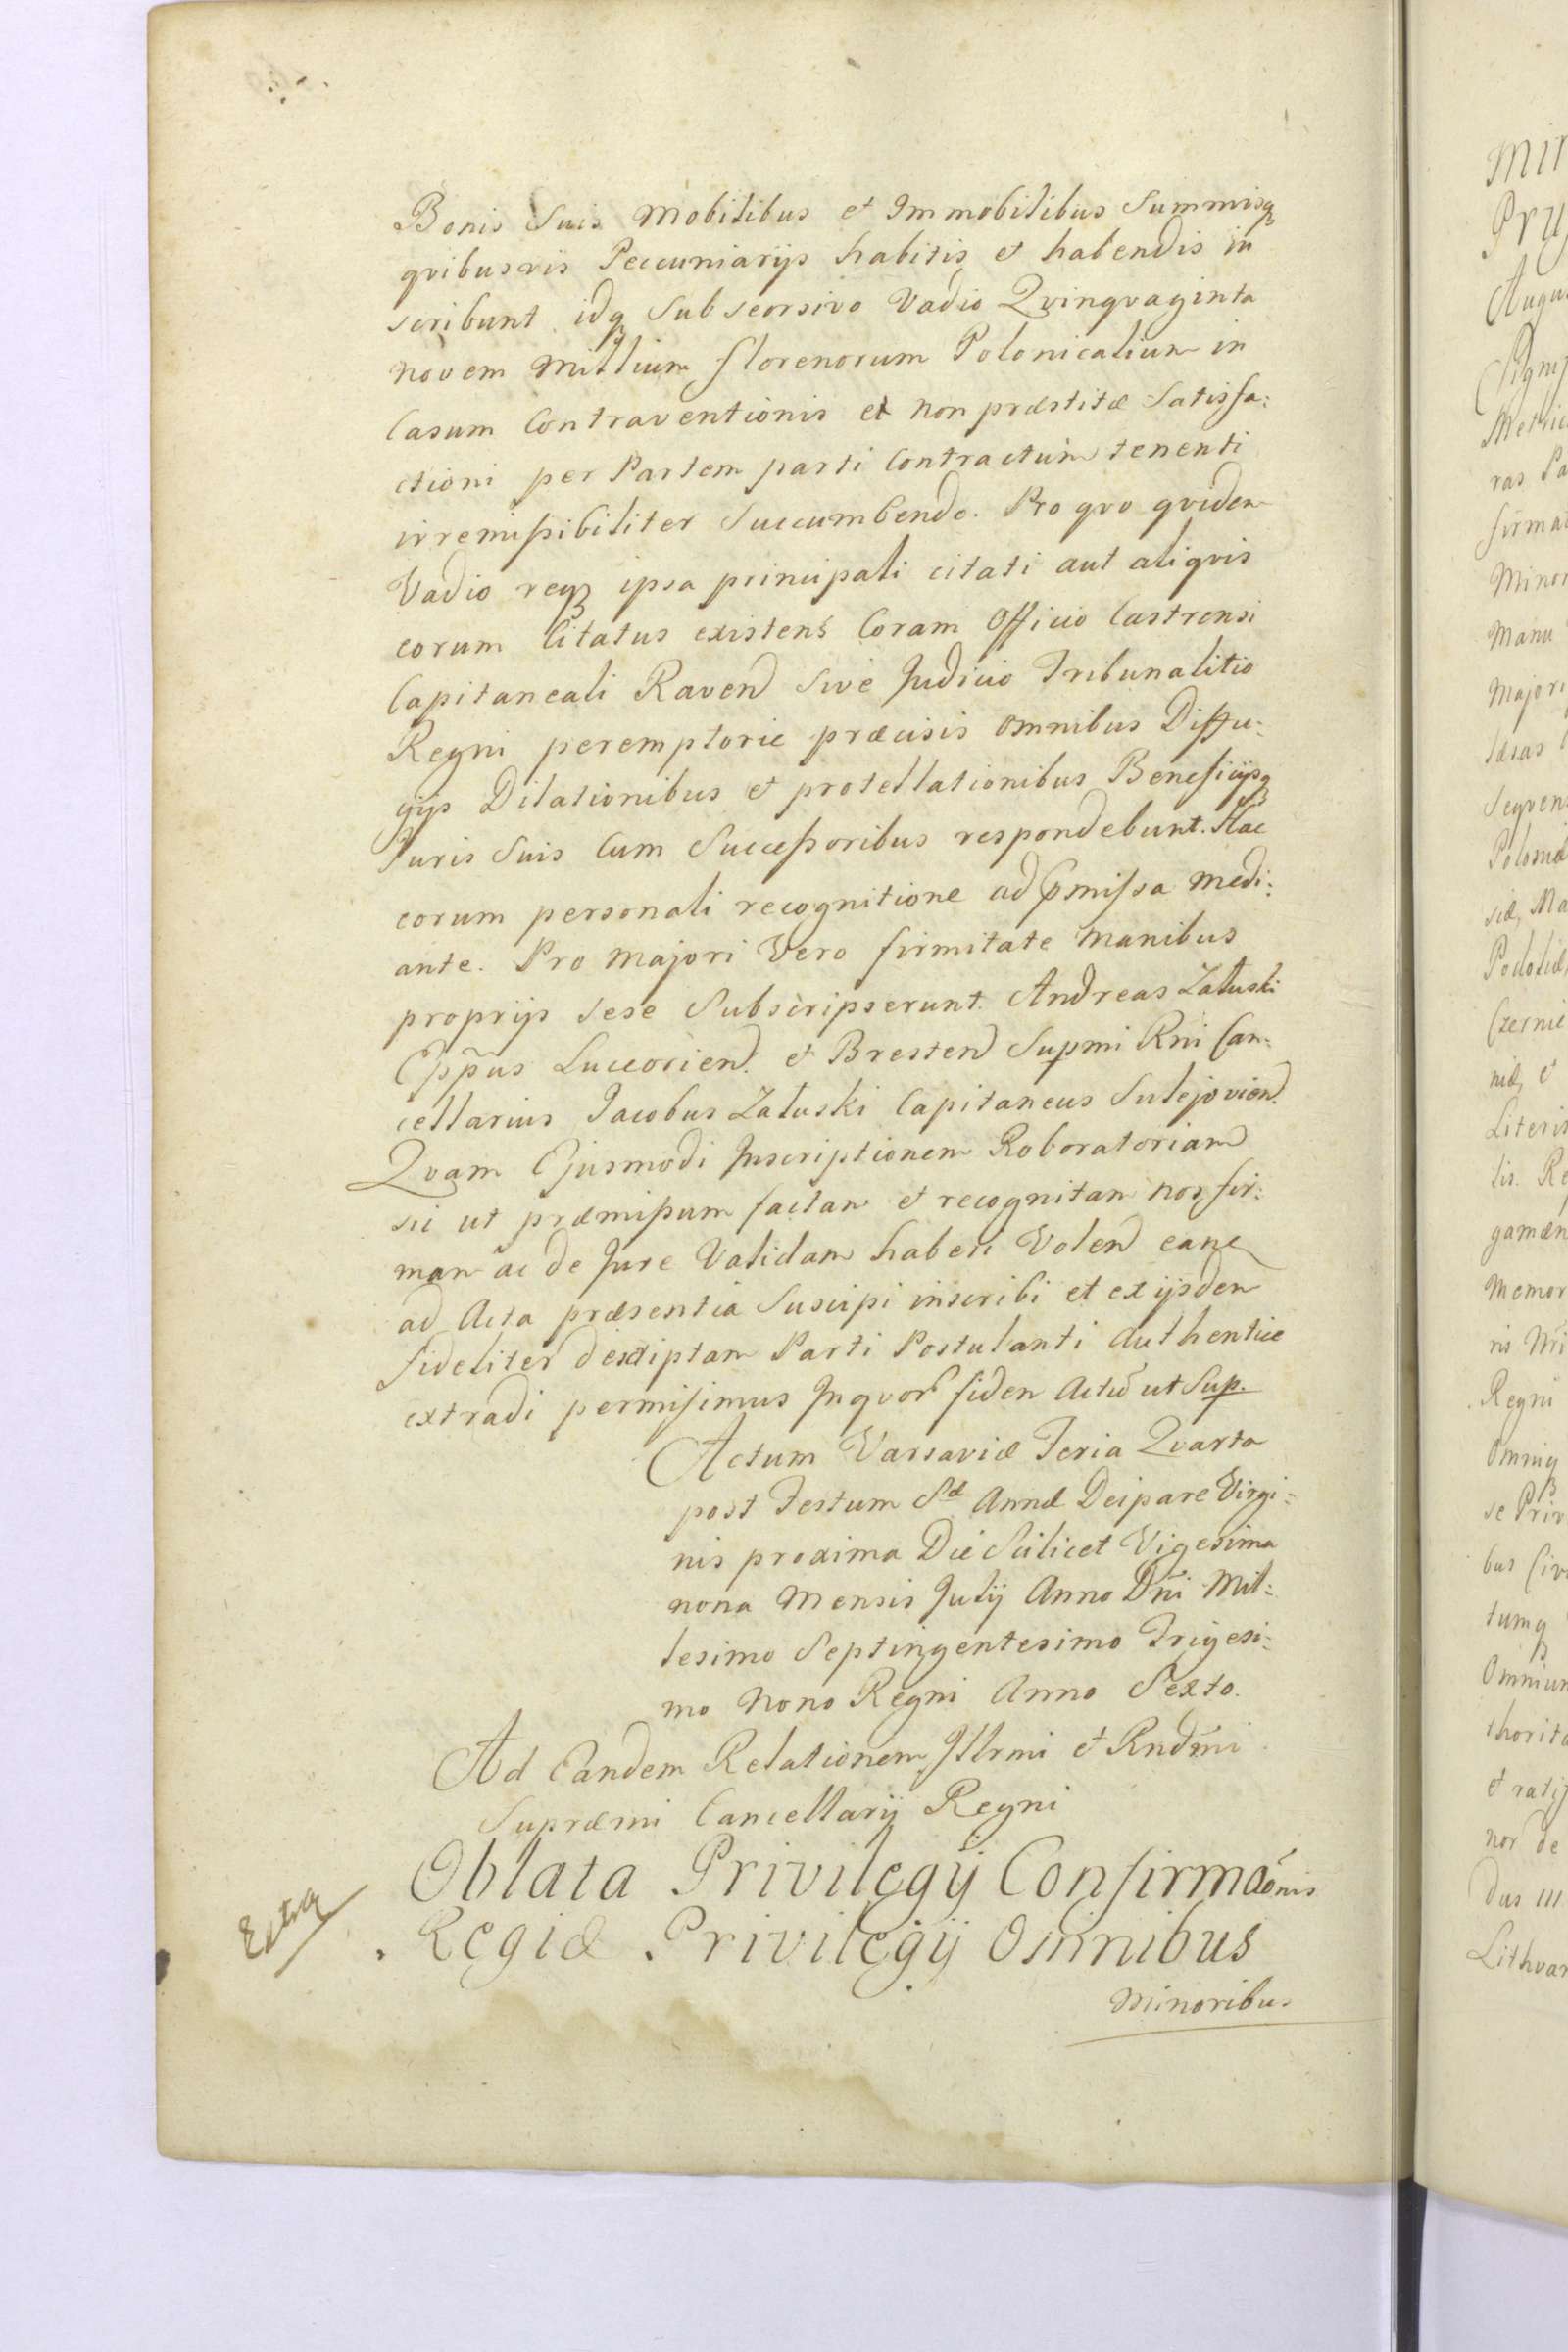 Bonis Suis Mobilibus et Immobilibus Summisq
qvibusvis Peccuniarijs habitis et habendis in
scribunt idq Sub seorsivo Vadio Qvinqvaginta
novem Millium florenorum Polonicalium in
Casum Contraventionis et non præstitæ Satisfa:
ctioni per Partem parti Contractum tenenti
irremissibiliter Succumbendo. Pro qvo qvidem
Vadio reqz ipsa principali citati aut aliqvis
eorum Citatus existens Coram Officio Castrensi
Capitaneali Ravend Sive Judicio Tribunalitio
Regni peremptorie præcisis omnibus Diffu:
gijs Dilationibus et protellationibus Beneficijsq
Juris Suis Cum Successoribus respondebunt. Hac
eorum personali recognitione ad pmissa medi:
ante. Pro majori Vero firmitate manibus
proprijs sese Subscripserunt. Andreas Załuski
Eppus Luceorien. et Bresten Supmi Rni Can:
cellarius Jacobus Załuski Capitaneus Sulejovien.
Qvam Ejusmodi Inscriptionem Roboratoriam
sic ut præmissum factam et recognitam nos fir:
mam ac de Jure Validam haberi Volend eanc
ad Acta præsentia Suscipi inscribi et ex ijsdem
fideliter descriptam Parti Postulanti Authentice
extradi permisimus Inqvor fidem Actu ut Sup.
Actum Varsaviæ Feria Qvarta
post Festum Sæ Annæ Deipare Virgi:
nis proxima Die Scilicet Vigesima
nona Mensis Julij Anno Dni Mil:
lesimo Septingentesimo Trigesi:
mo Nono Regni Anno Sexto.
Ad Eandem Relationem Illrmi et Rndmi
Supræmi Cancellarij Regni
Extra
Oblata Privilegij Confirmaonis
Regiæ Privilegij Omnibus
Minoribus
mir
Pry
Augu
ras Pa
firmat
Minor
Manu
Majori
læsas
Seqven
siæ, Ma
Podoliæ
Czernie
niæ, e
Literis
tis. Re
Memor
Regni
se Priv
tumq
Omnium
thorita
nor de
dus
Lithvan